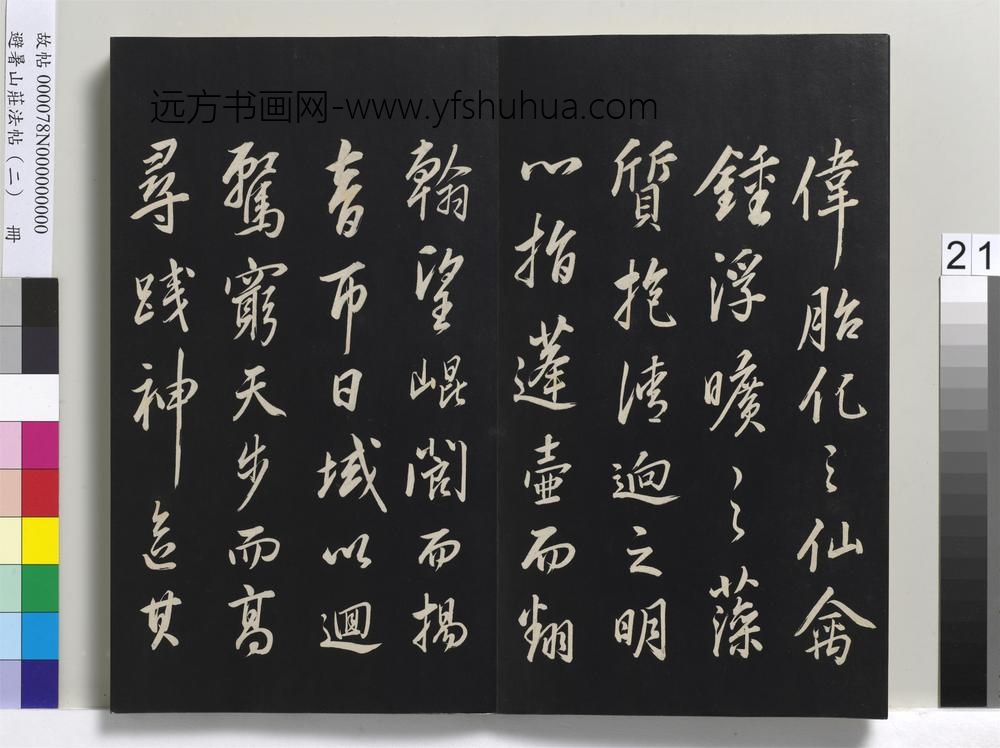 远方书画网-www.yfshuhua.com
偉胎化之仙禽
鍾浮曠之藻
質抱清迥之明
心指蓬壺而翻
翰望崐閬而揚
音帀日域以迴
騖窮天步而高
尋踐神區其
故帖 000078N000000000
避暑山莊法帖(二) 冊
21